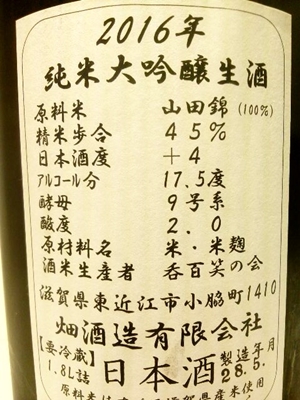 2016年
純米大吟醸生酒
原料米 山田錦(100%)
精米歩合 45%
日本酒度 +4
アルコール分 17.5度
酵母 9号系
酸度 2.0
原材料名 米・米麹
酒米生産者 呑百笑の会
滋賀県東近江市小脇町1410
畑酒造有限会社
【要冷蔵】 日本酒 製造年月
1.8L詰 28.5.